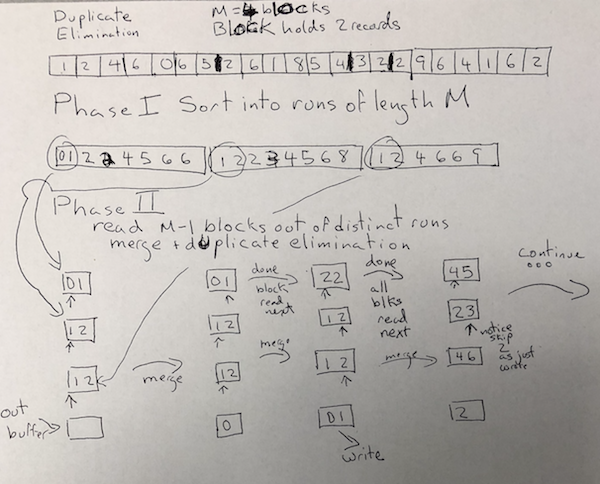 Duplicate
Elimination
M = 4 blocks
Block holds 2 records
1 2 4 6 0 6 5 2 6 1 8 5 4 3 2 2 9 6 4 1 6 2
Phase I Sort into runs of length M
01 2 2 4 5 6 6 1 2 2 3 4 5 6 8 1 2 4 6 6 9
Phase II
read M-1 blocks out of distinct runs
merge + duplicate elimination
01 01 done block read next 22 done all blks read next 45 continue ...
12 12 12 23
notice skip 2 as just wrote
12 merge 12 merge 12 merge 46
out buffer 0 01 2
write